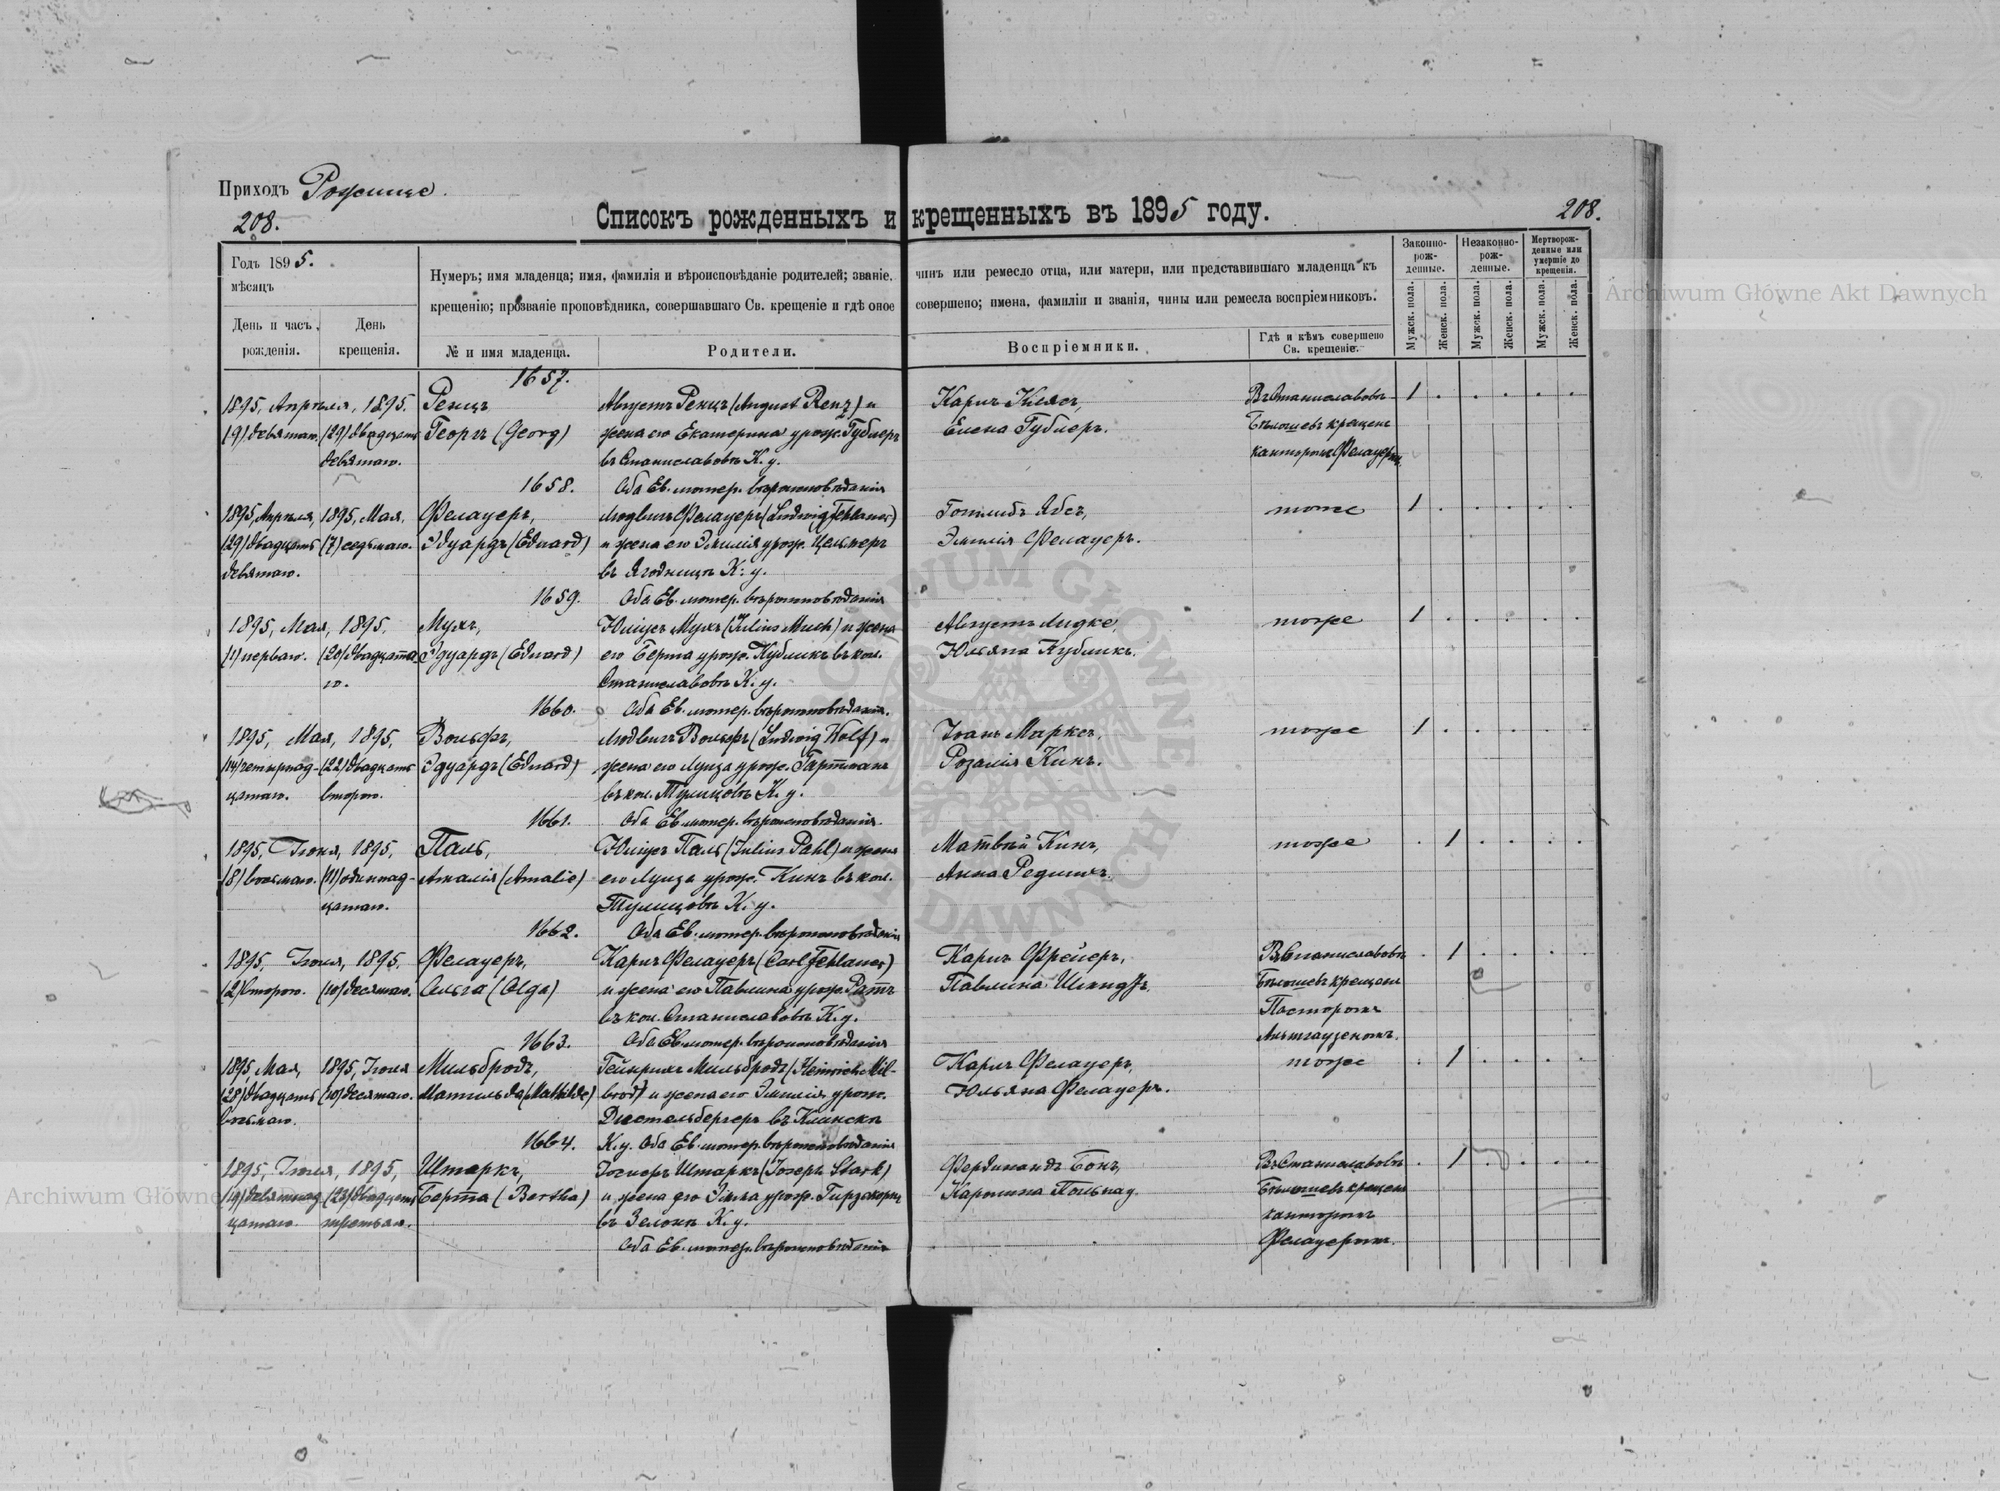 Приходъ Рожище.
208.
208.
Списокъ рожденныхъ и крещенныхъ въ 1895 году.
Годъ 1895.
мѣсяцъ
День и часъ рожденія.
День крещенія.
Нумеръ; имя младенца; имя, фамилія и вѣроисповѣданіе родителей; званіе, чинъ или ремесло отца, или матери, или представившаго младенца къ
крещенію; прозваніе проповѣдника, совершавшаго Св. крещеніе и гдѣ оное совершено; имена, фамиліи и званія, чины или ремесла воспріемниковъ.
№ и имя младенца.
Родители.
Воспріемники.
Гдѣ и кѣмъ совершено
Св. крещеніе.
Законно-
рож-
денные.
Незаконно-
рож-
денные.
Мертворож-
денные или
умершіе до
крещенія.
Мужск. пола.
Женск. пола.
Мужск. пола.
Женск. пола.
Мужск. пола.
Женск. пола.
1657.
1895, Апрѣля, 1895. Ренцъ Августъ Ренцъ (August Renz) и Карлъ Клясъ, Въ Станиславовѣ- 1
(9) девятаго. (29) двадцать Георгъ (Georg) жена его Екатерина урож. Гублеръ Елена Гублеръ. крещенъ
девятаго. въ Станиславовѣ К. у. канторомъ Фелауеромъ
1658. Оба Ев. лютер. вѣроисповѣданія
1895, Апрѣля, 1895, Мая, Фелауеръ, Людвигъ Фелауеръ (Ludwig Fehlauer) Готлибъ Ябсъ, тоже 1
(29) двадцать (7) седьмаго. Эдуардъ (Eduard) и жена его Эмилія урож. Цельмеръ Эмилія Фелауеръ.
девятаго. въ Ягодницѣ К. у.
1659. Оба Ев. лютер. вѣроисповѣданія
1895, Мая, 1895. Мухъ, Юліусъ Мухъ (Julius Much) и жена Августъ Лидке, тоже 1
(1) перваго. (20) двадцата- Эдуардъ (Eduard) его Берта урож. Кубликъ въ кол. Юльяна Кубликъ.
го. Станиславовѣ К. у.
1660. Оба Ев. лютер. вѣроисповѣданія.
1895, Мая, 1895, Вольфъ, Людвигъ Вольфъ (Ludwig Wolf) и Іоанъ Марксъ, тоже 1
(14) четырнад- (22) двадцать Эдуардъ (Eduard) жена его Луиза урож. Гартманъ Розалія Кинъ.
цатаго. второго. въ кол. Тулицовѣ К. у.
1661. Оба Ев. лютер. вѣроисповѣданія.
1895, Іюня, 1895, Паль, Юліусъ Паль (Julius Pahl) и жена Матвѣй Кинъ, тоже 1
(8) восьмаго. (11) одиннад- Амалія (Amalie) его Луиза урож. Кинъ въ кол. Анна
цатаго. Тулицовѣ К. у.
1662. Оба Ев. лютер. вѣроисповѣданія
1895, Іюля, 1895. Фелауеръ, Карлъ Фелауеръ (Carl Fehlauer) Карлъ Фрейеръ, Въ Станиславовѣ 1
(2) второго. (10) десятаго. Ольга (Olga) и жена его Павлина урож. Ратъ Павлина крещена
въ кол. Станиславовѣ К. у. Пасторомъ
1663. Оба Ев. лютер. вѣроисповѣданія Альтгаузеномъ.
1895, Мая, 1895, Іюля Мильбродъ, Гейнрихъ Мильбродъ (Heinrich Mil- Карлъ Фелауеръ, тоже 1
(28) двадцать (10) десятаго. Матильда (Mathilde) brod) и жена его Эмилія урож. Юльяна Фелауеръ.
восьмаго. Дистельбергеръ въ Клинскѣ
1664. К. у. Оба Ев. лютер. вѣроисповѣданія
1895, Іюля, 1895, Штаркъ, Іосифъ Штаркъ (Joseph Stark) Фердинандъ Бонъ, Въ Станиславовѣ 1
(19) девятнад- (23) двадцать Берта (Bertha) и жена его Эмма урож. Каролина Польнау. крещена
цатаго. третьаго. въ Зелонѣ К. у. канторомъ
Оба Ев. лютер. вѣроисповѣданія Фелауеромъ.
Archiwum Główne Akt Dawnych
Archiwum Główne Akt Dawnych
ARCHIWUM GŁÓWNE AKT DAWNYCH